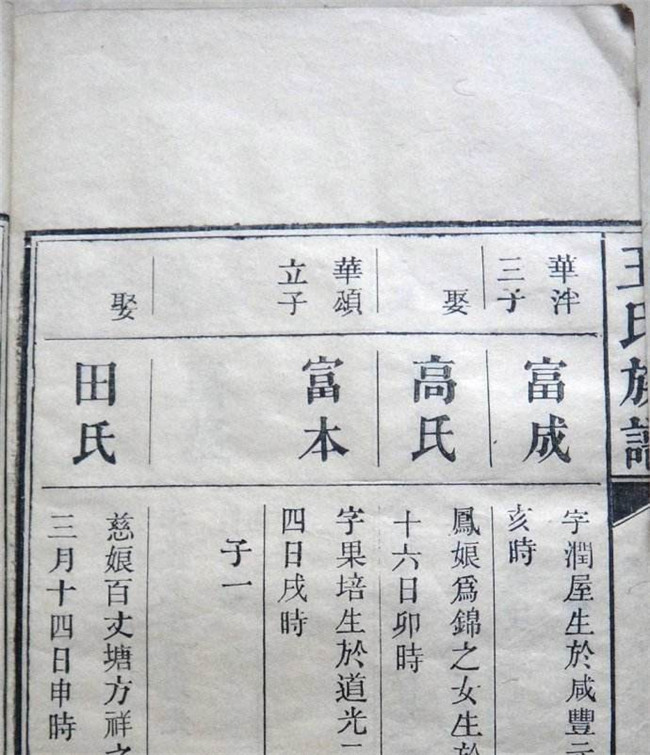 王氏族譜
華泮
三子
富成
字潤屋生於咸豐元
亥時
娶
高氏
鳳娘爲錦之女生於
十六日卯時
華頌
立子
富本
字果培生於道光二
四日戌時
子一
娶
田氏
慈娘百丈塘方祥之
三月十四日申時